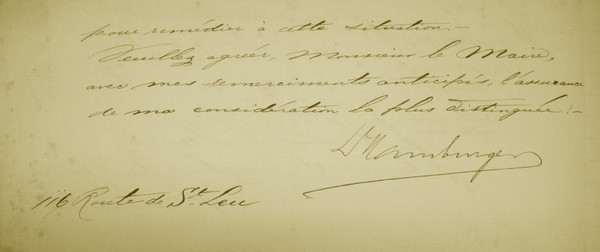 pour remédier à cette situation.—
Veuillez agréer, Monsieur le Maire,
avec mes remerciments anticipés, l'assurance
de ma considération la plus distinguée.—
Dr Hamburger
116 Route de St. Leu